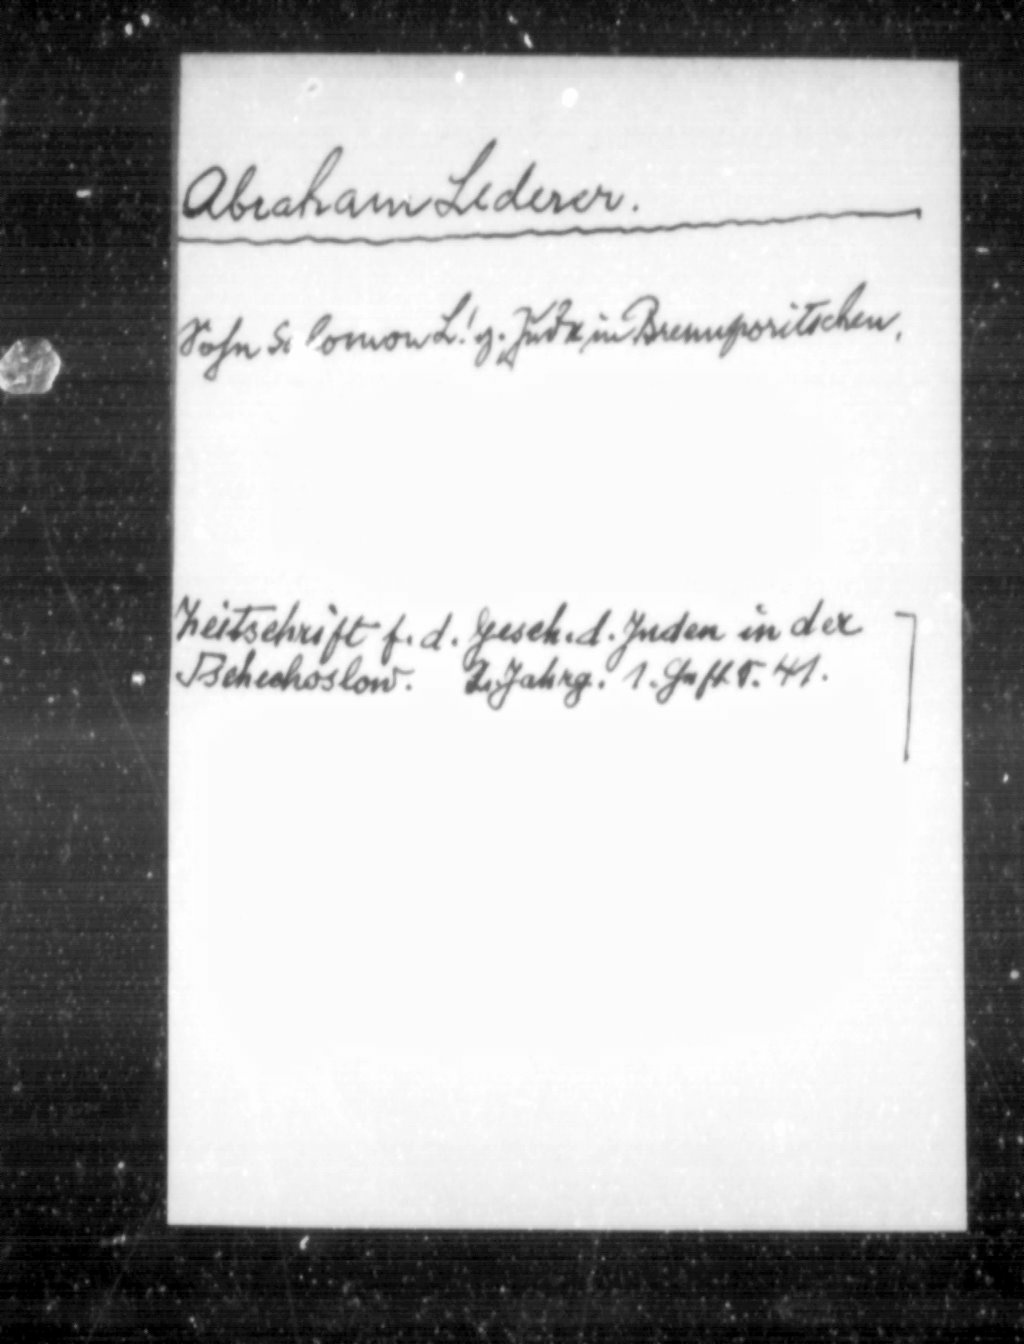 Abraham Lederer.
Sohn Salomon L.! g. Jude in Brennporitschen.
Zeitschrift f. d. Gesch. d. Juden in der
Tschechoslow. 2. Jahrg. 1. Heft S. 41.